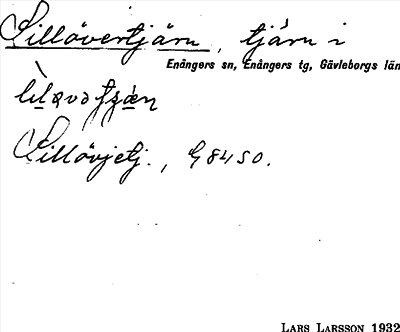 Lillövertjärn, tjärn i
Enångers sn, Enångers tg, Gävleborgs län
Lillövjetj., G84SO.
LARS LARSSON 1932